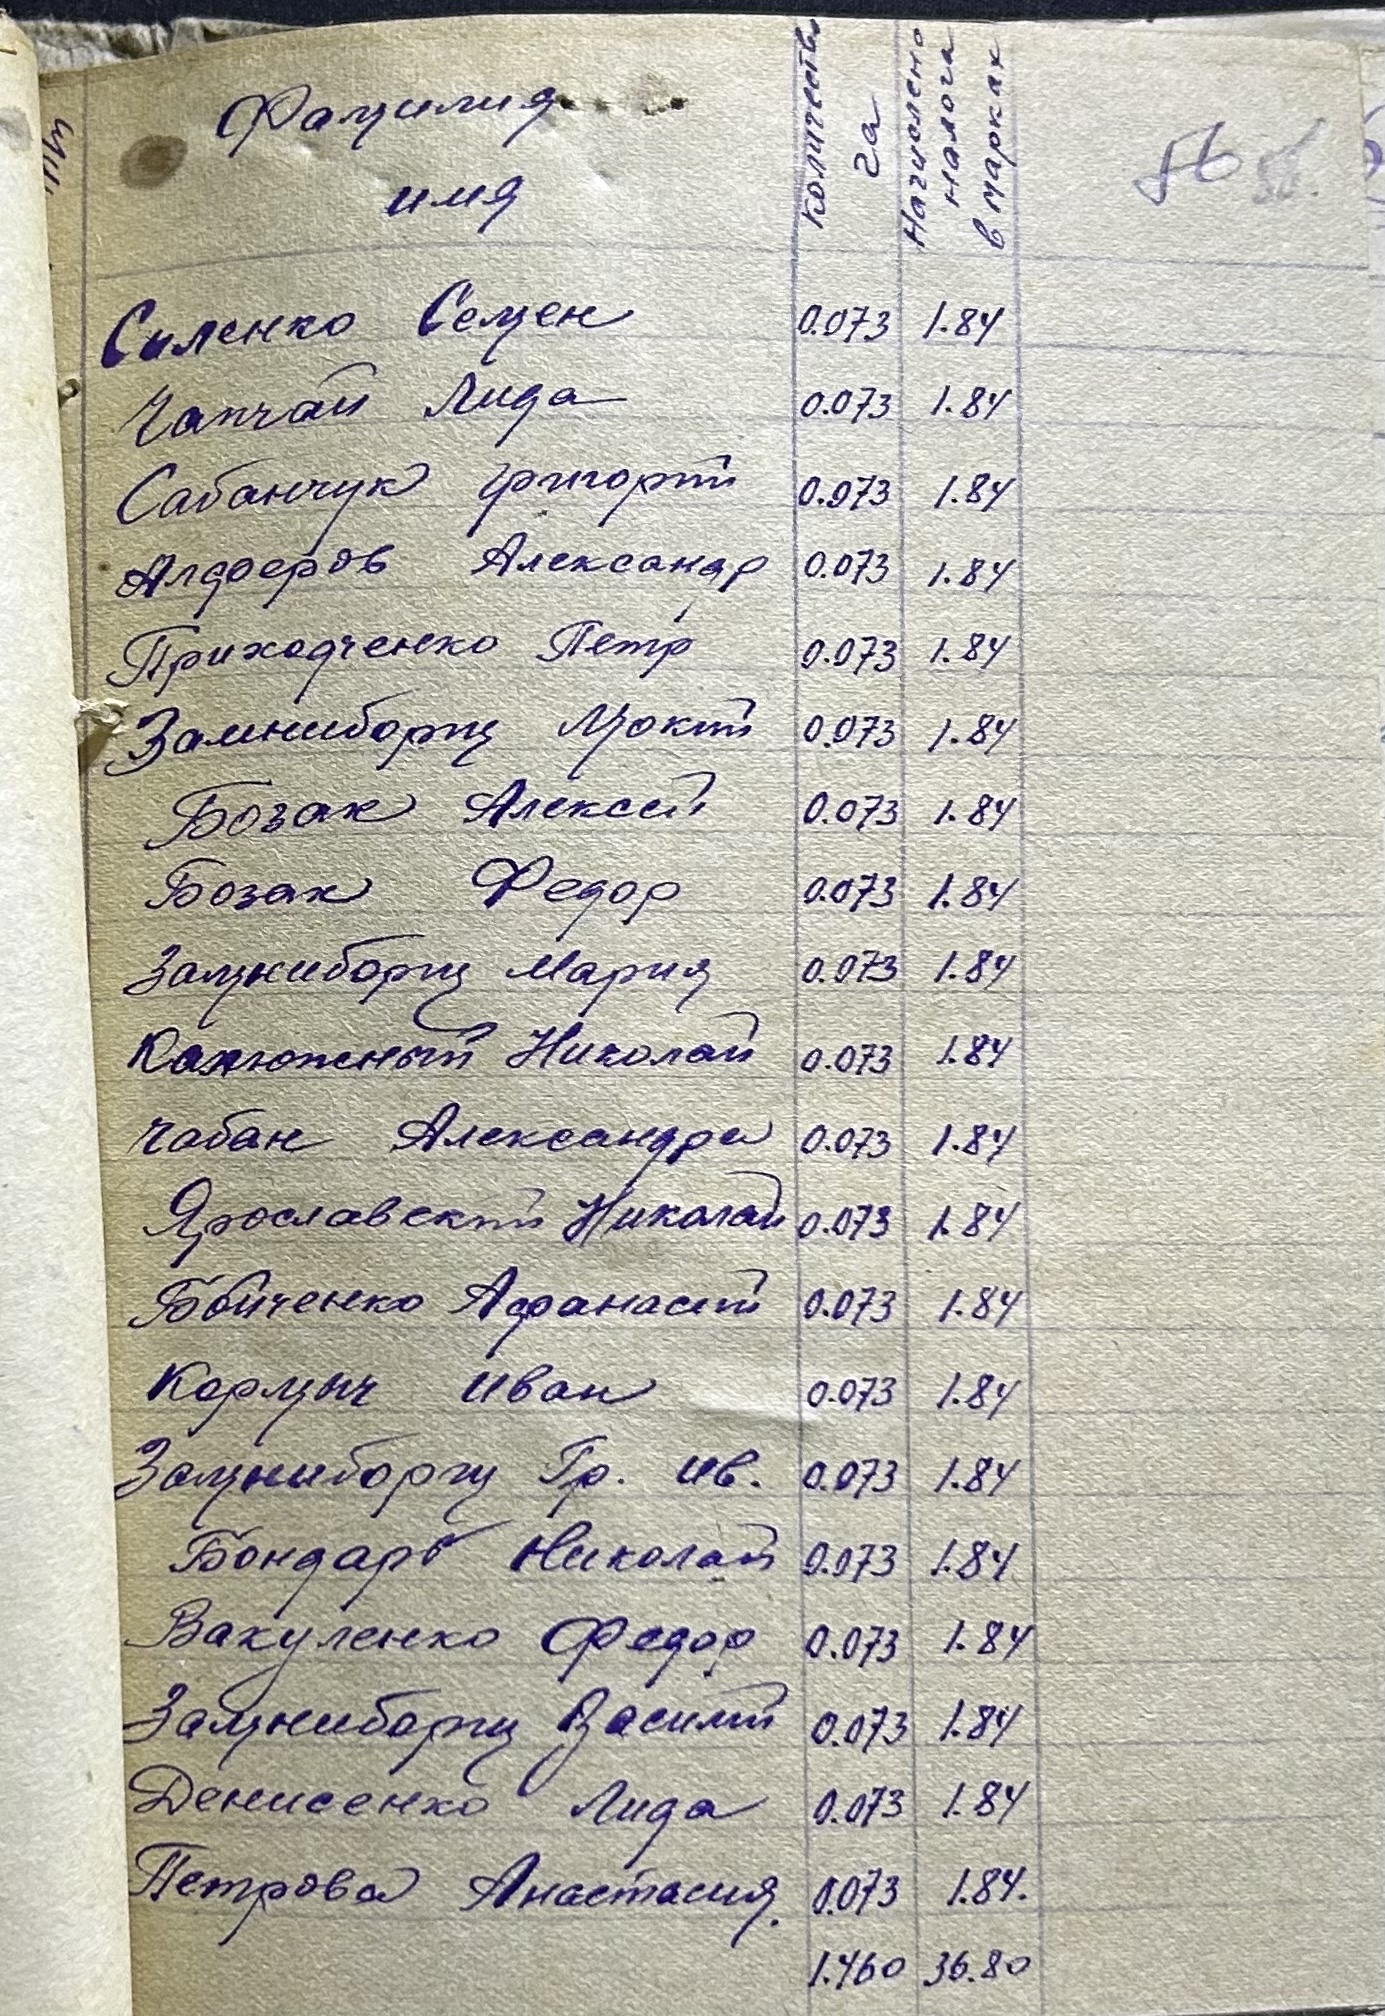 Фамилия
имя
количество
га
Начислено
налога
в марках
56 56.
Силенко Семен 0.073 1.84
Чапчай Лида 0.073 1.84
Сабанчук Григорий 0.073 1.84
Алдоеров Александр 0.073 1.84
Приходченко Петр 0.073 1.84
Замниборщ Мокий 0.073 1.84
Бозак Алексей 0.073 1.84
Бозак Федор 0.073 1.84
Замниборщ Мария 0.073 1.84
Калюжный Николай 0.073 1.84
Чабан Александра 0.073 1.84
Ярославский Николай 0.073 1.84
Бойченко Афанасий 0.073 1.84
Кормыч Иван 0.073 1.84
Замниборщ Гр. Ив. 0.073 1.84
Бондарь Николай 0.073 1.84
Вакуленко Федор 0.073 1.84
Замниборщ Василий 0.073 1.84
Денисенко Лида 0.073 1.84
Петрова Анастасия. 0.073 1.84.
1.460 36.80